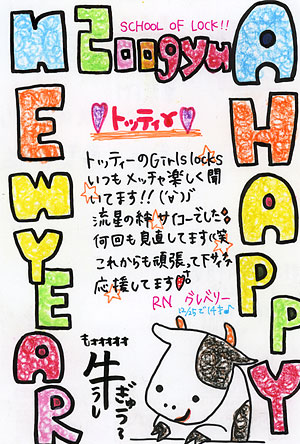 SCHOOL OF LOCK!!
2009yu
A HAPPY
NEWYEAR
トッティγ
トッティーのGirls locks
いつもメッチャ楽しく聞
いてます!! (´∀`)ゞ
流星の絆 サイコーでした!
何回も見直してます(笑
これからも頑張って下サイ
応援してます!!
RN グレベリー
12/25で14才♪
もぉぉぉぉぉ
牛
うし
ぎゅう